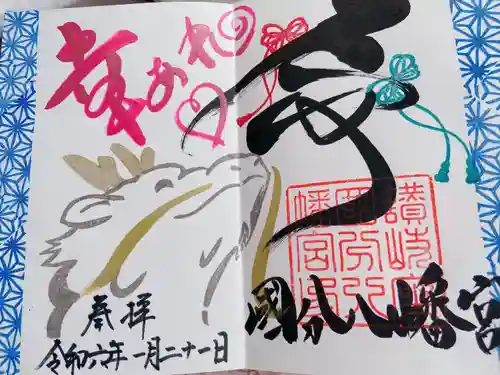 幸かれ
讃岐
國分八
幡宮
國分八幡宮
奉拝
令和六年一月二十一日